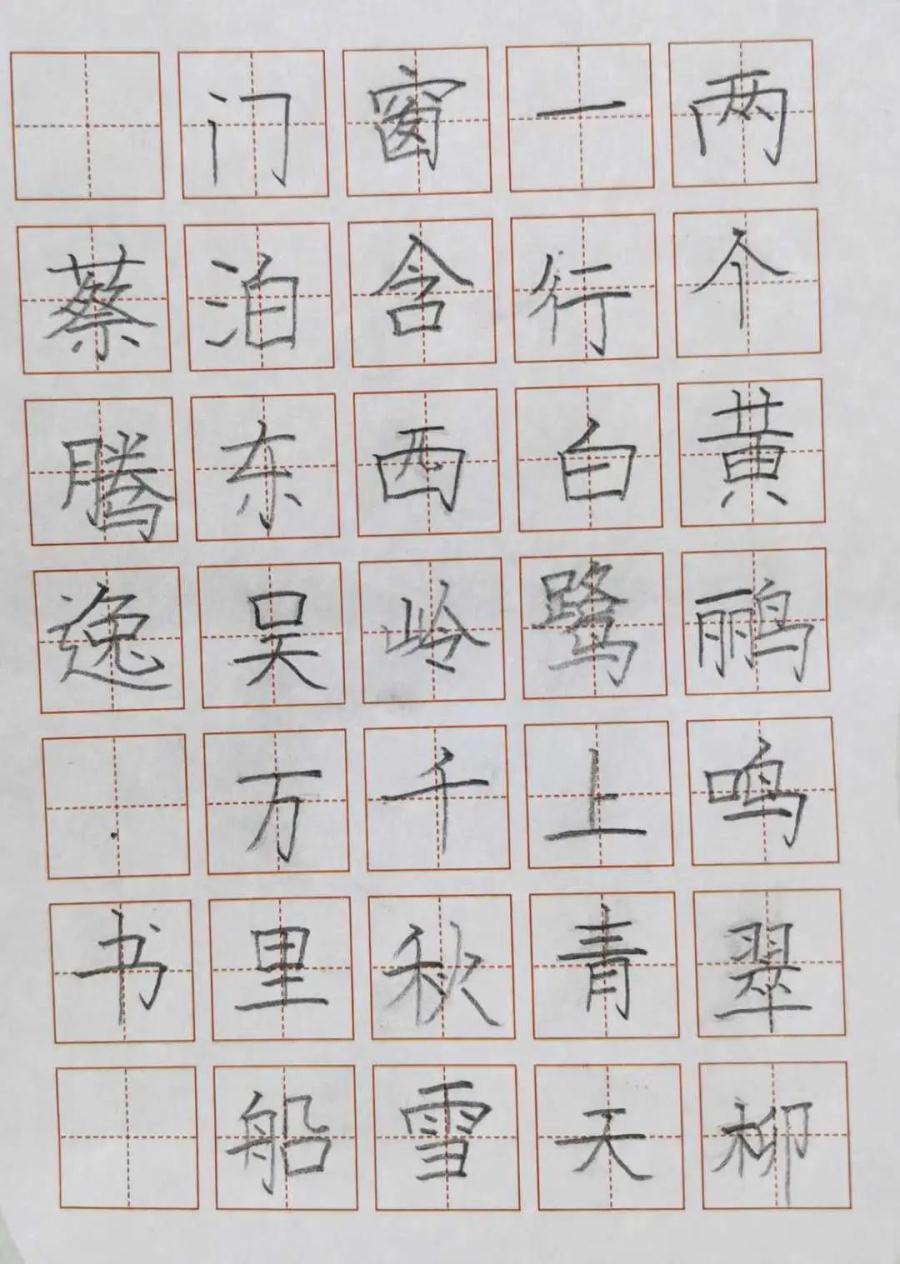 两个黄鹂鸣翠柳
一行白鹭上青天
窗含西岭千秋雪
门泊东吴万里船
蔡腾逸·书